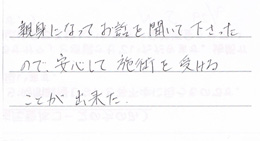 親身になってお話を聞いて下さった
ので、安心して施術を受ける
ことが出来た。